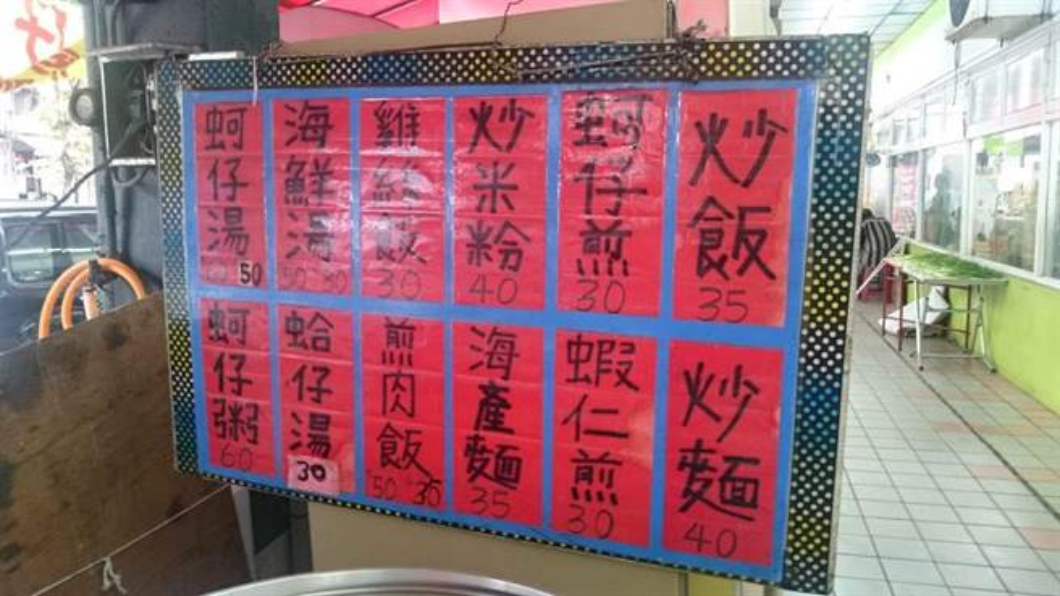 炒飯
35
蚵仔煎
30
炒米粉
40
雞絲飯
30
海鮮湯
50 30
蚵仔湯
50
炒麵
40
蝦仁煎
30
海產麵
35
煎肉飯
50 35
蛤仔湯
30
蚵仔粥
60